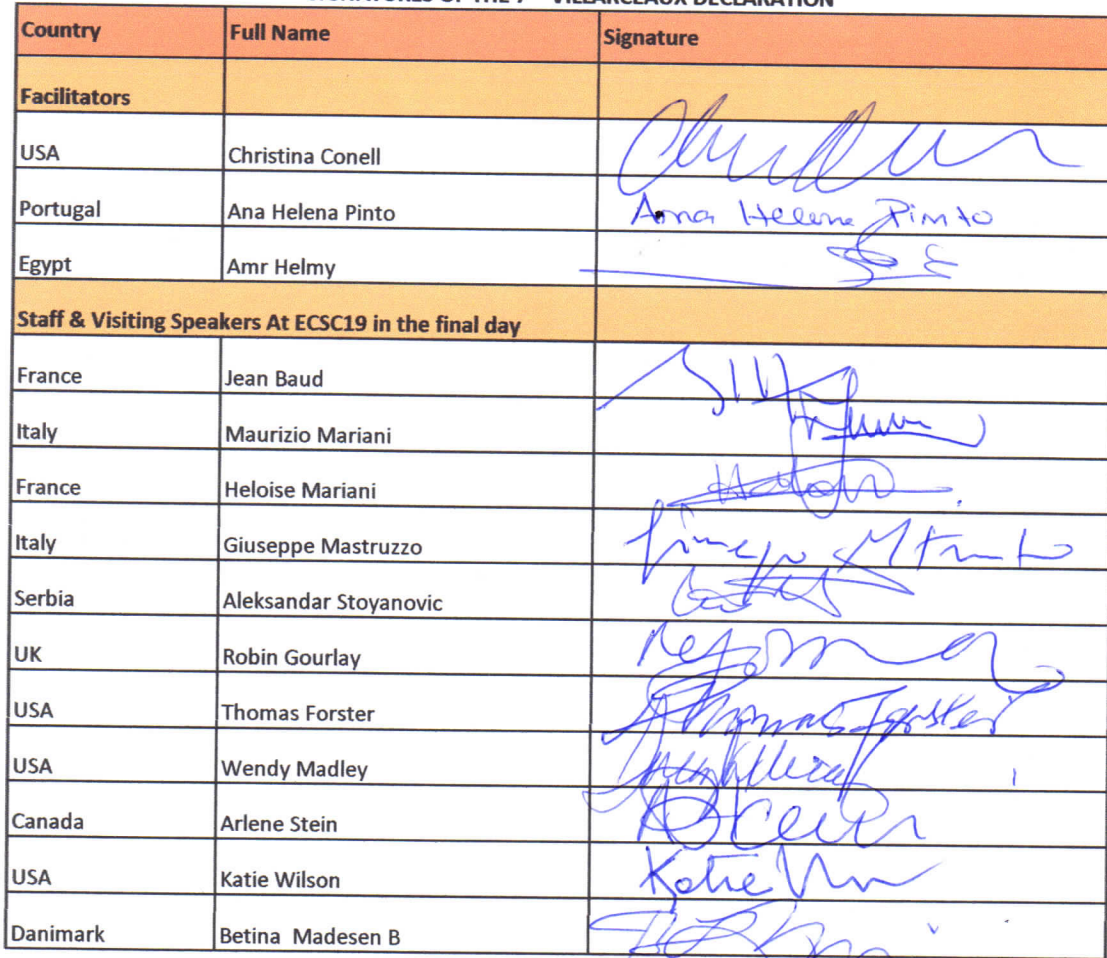 SIGNATURES OF THE 7th VILLARCEAUX DECLARATION
Country Full Name Signature
Facilitators
USA Christina Conell
Portugal Ana Helena Pinto Ana Helena Pinto
Egypt Amr Helmy
Staff & Visiting Speakers At ECSC19 in the final day
France Jean Baud
Italy Maurizio Mariani
France Heloise Mariani
Italy Giuseppe Mastruzzo
Serbia Aleksandar Stoyanovic
UK Robin Gourlay
USA Thomas Forster Thomas Forster
USA Wendy Madley
Canada Arlene Stein
USA Katie Wilson Katie
Danimark Betina Madesen B